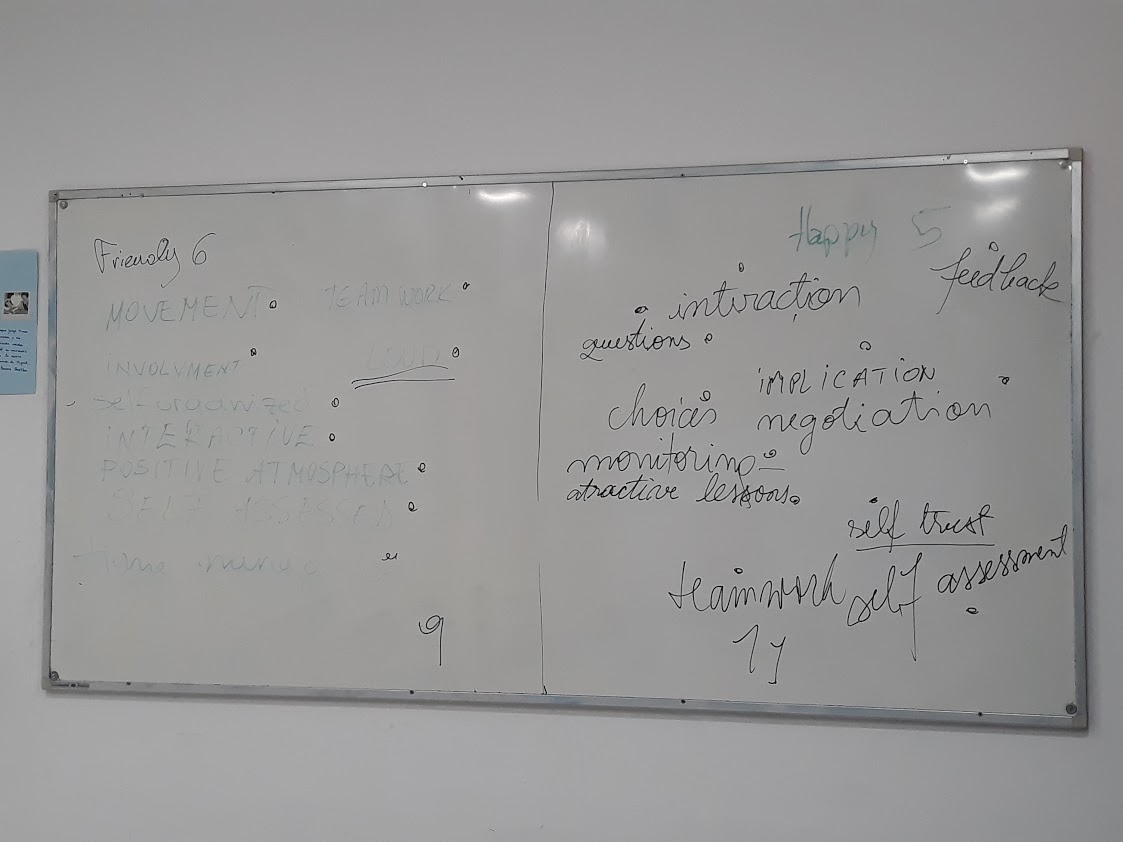 Friendly 6
MOVEMENT
TEAM WORK
INVOLVMENT
LOUD
self organized
INTERACTIVE
POSITIVE ATMOSPHERE
SELF ASSESSED
time
9
Happy 5
feedback
intiraction
questions
IMPLICATION
choices
negotiation
monitoring
atractive lessons
self trust
teamwork
self assessment